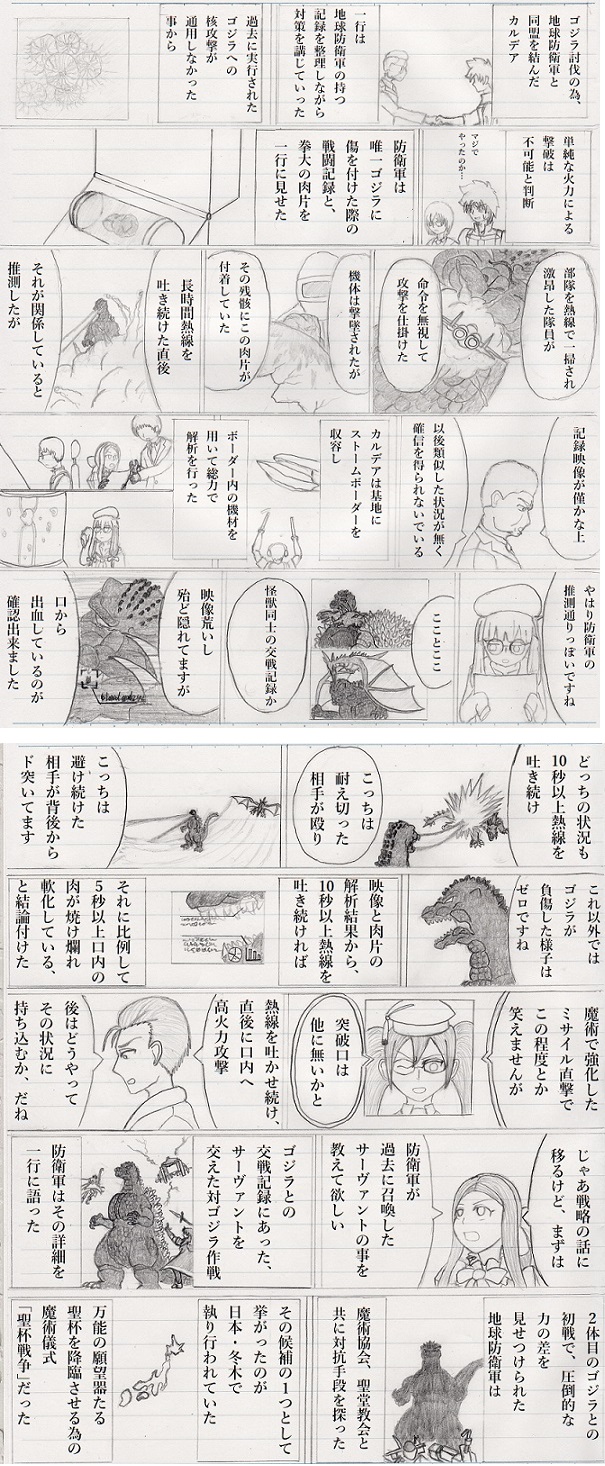 ゴジラ討伐の為、
地球防衛軍と
同盟を結んだ
カルデア
一行は
地球防衛軍の持つ
記録を整理しながら
対策を講じていった
過去に実行された
ゴジラへの
核攻撃が
通用しなかった
事から
単純な火力による
撃破は
不可能と判断
マジで
やったのか…
防衛軍は
唯一ゴジラに
傷を付けた際の
戦闘記録と、
拳大の肉片を
一行に見せた
部隊を熱線で一掃され
激昂した隊員が
命令を無視して
攻撃を仕掛けた
機体は撃墜されたが
その残骸にこの肉片が
付着していた
長時間熱線を
吐き続けた直後
それが関係していると
推測したが
記録映像が僅かな上
以後類似した状況が無く
確信を得られないでいる
カルデアは基地に
ストームボーダーを
収容し
ボーダー内の機材を
用いて総力で
解析を行った
やはり防衛軍の
推測通りっぽいですね
こことここ
怪獣同士の交戦記録か
映像荒いし
殆ど隠れてますが
口から
出血しているのが
確認出来ました
どっちの状況も
10秒以上熱線を
吐き続け
こっちは
耐え切った
相手が殴り
こっちは
避け続けた
相手が背後から
ド突いてます
これ以外では
ゴジラが
負傷した様子は
ゼロですね
映像と肉片の
解析結果から、
10秒以上熱線を
吐き続ければ
それに比例して
5秒以上口内の
肉が焼け爛れ
軟化している、
と結論付けた
魔術で強化した
ミサイル直撃で
この程度とか
笑えませんが
突破口は
他に無いかと
熱線を吐かせ続け、
直後に口内へ
高火力攻撃
後はどうやって
その状況に
持ち込むか、だね
じゃあ戦略の話に
移るけど、まずは
防衛軍が
過去に召喚した
サーヴァントの事を
教えて欲しい
ゴジラとの
交戦記録にあった、
サーヴァントを
交えた対ゴジラ作戦
防衛軍はその詳細を
一行に語った
2体目のゴジラとの
初戦で、圧倒的な
力の差を
見せつけられた
地球防衛軍は
魔術協会、聖堂教会と
共に対抗手段を探った
その候補の1つとして
挙がったのが
日本・冬木で
執り行われていた
万能の願望器たる
聖杯を降臨させる為の
魔術儀式
「聖杯戦争」だった